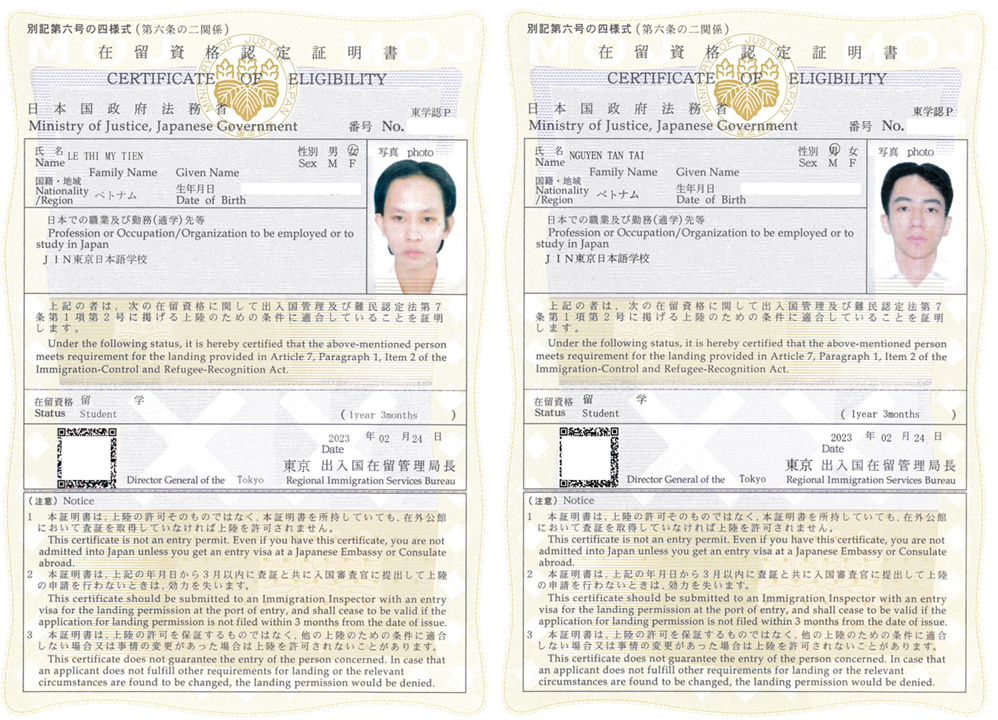 別記第六号の四様式(第六条の二関係)
在留資格認定証明書
CERTIFICATE OF ELIGIBILITY
日本国政府法務省
東学認P
Ministry of Justice, Japanese Government
番号 No.
氏名
Name
LE THI MY TIEN
性別 男 女
Sex M F
Family Name Given Name
国籍・地域
Nationality
/Region
ベトナム
生年月日
Date of Birth
写真 photo
日本での職業及び勤務(通学)先等
Profession or Occupation/Organization to be employed or to
study in Japan
JIN東京日本語学校
上記の者は、次の在留資格に関して出入国管理及び難民認定法第7
条第1項第2号に掲げる上陸のための条件に適合していることを証明
します。
Under the following status, it is hereby certified that the above-mentioned person
meets requirement for the landing provided in Article 7, Paragraph 1, Item 2 of the
Immigration-Control and Refugee-Recognition Act.
在留資格 留学
Status Student
( 1year 3months )
2023 年 02 月 24 日
Date
東京 出入国在留管理局長
Director General of the Tokyo Regional Immigration Services Bureau
(注意) Notice
1 本証明書は、上陸の許可そのものではなく、本証明書を所持していても、在外公館
において査証を取得していなければ上陸を許可されません。
This certificate is not an entry permit. Even if you have this certificate, you are not
admitted into Japan unless you get an entry visa at a Japanese Embassy or Consulate
abroad.
2 本証明書は、上記の年月日から3月以内に査証と共に入国審査官に提出して上陸
の申請を行わないときは、効力を失います。
This certificate should be submitted to an Immigration Inspector with an entry
visa for the landing permission at the port of entry, and shall cease to be valid if the
application for landing permission is not filed within 3 months from the date of issue.
3 本証明書は、上陸の許可を保証するものではなく、他の上陸のための条件に適合
しない場合又は事情の変更があった場合は上陸を許可されないことがあります。
This certificate does not guarantee the entry of the person concerned. In case that
an applicant does not fulfill other requirements for landing or the relevant
circumstances are found to be changed, the landing permission would be denied.
別記第六号の四様式(第六条の二関係)
在留資格認定証明書
CERTIFICATE OF ELIGIBILITY
日本国政府法務省
東学認P
Ministry of Justice, Japanese Government
番号 No.
氏名
Name
NGUYEN TAN TAI
性別 男 女
Sex M F
Family Name Given Name
国籍・地域
Nationality
/Region
ベトナム
生年月日
Date of Birth
写真 photo
日本での職業及び勤務(通学)先等
Profession or Occupation/Organization to be employed or to
study in Japan
JIN東京日本語学校
上記の者は、次の在留資格に関して出入国管理及び難民認定法第7
条第1項第2号に掲げる上陸のための条件に適合していることを証明
します。
Under the following status, it is hereby certified that the above-mentioned person
meets requirement for the landing provided in Article 7, Paragraph 1, Item 2 of the
Immigration-Control and Refugee-Recognition Act.
在留資格 留学
Status Student
( 1year 3months )
2023 年 02 月 24 日
Date
東京 出入国在留管理局長
Director General of the Tokyo Regional Immigration Services Bureau
(注意) Notice
1 本証明書は、上陸の許可そのものではなく、本証明書を所持していても、在外公館
において査証を取得していなければ上陸を許可されません。
This certificate is not an entry permit. Even if you have this certificate, you are not
admitted into Japan unless you get an entry visa at a Japanese Embassy or Consulate
abroad.
2 本証明書は、上記の年月日から3月以内に査証と共に入国審査官に提出して上陸
の申請を行わないときは、効力を失います。
This certificate should be submitted to an Immigration Inspector with an entry
visa for the landing permission at the port of entry, and shall cease to be valid if the
application for landing permission is not filed within 3 months from the date of issue.
3 本証明書は、上陸の許可を保証するものではなく、他の上陸のための条件に適合
しない場合又は事情の変更があった場合は上陸を許可されないことがあります。
This certificate does not guarantee the entry of the person concerned. In case that
an applicant does not fulfill other requirements for landing or the relevant
circumstances are found to be changed, the landing permission would be denied.